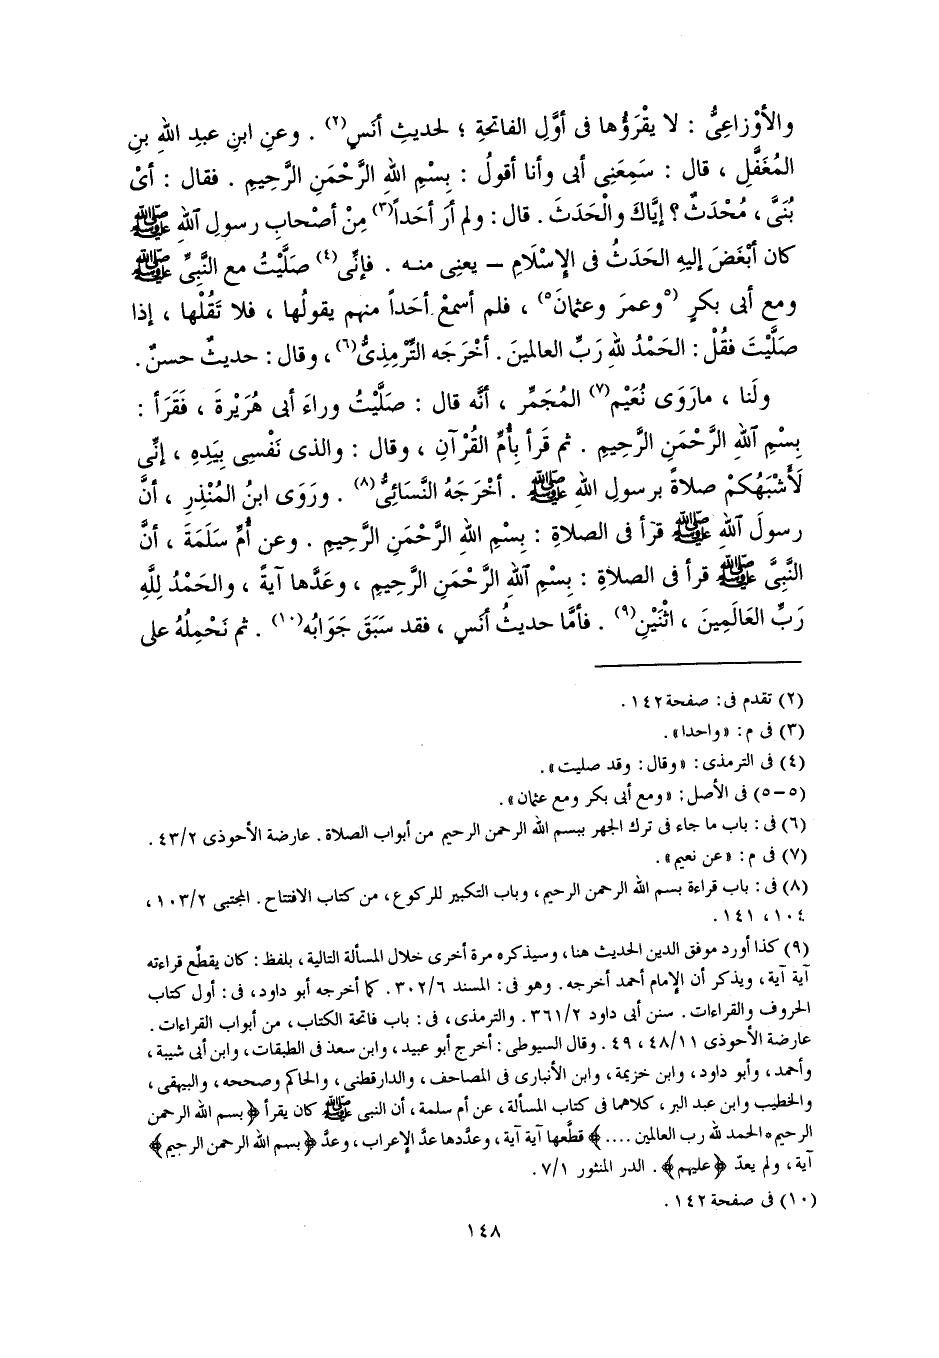 والأَوْزاعِىُّ : لا يقْرَؤُها فى أوَّلِ الفاتحةِ ؛ لحديثِ أنَسٍ(٢) . وعنِ ابنِ عبدِ اللهِ بنِ
المُغَفَّلِ ، قال : سَمِعَنِى أبى وأنا أقولُ : بِسْمِ اللهِ الرَّحْمَنِ الرَّحِيمِ . فقال : أىْ
بُنَىَّ ، مُحْدَثٌ ؟ إيَّاكَ والْحَدَثَ . قال : ولم أرَ أحَداً(٣) مِنْ أصْحابِ رسولِ اللهِ ﷺ
كان أبْغَضَ إليهِ الحَدَثُ فى الإِسْلَامِ – يعنِى منـه . فإنِّى(٤) صَلَّيْتُ مع النَّبِىِّ ﷺ
ومع أبى بكرٍ (٥وعمرَ وعثمانَ٥) ، فلم أسمعْ أحَداً منهم يقولُها ، فلا تَقُلْها ، إذا
صَلَّيْتَ فقُلْ : الحَمْدُ للهِ رَبِّ العالمينَ . أخْرَجَه التِّرْمِذِىُّ(٦) ، وقال : حديثٌ حسنٌ .
ولَنا ، مارَوَى نُعَيْم(٧) المُجَمِّر ، أنَّه قال : صَلَّيْتُ وراءَ أبى هُرَيْرةَ ، فَقَرَأ :
بِسْمِ اللهِ الرَّحْمَنِ الرَّحِيمِ . ثم قَرأ بِأُمِّ القُرْآنِ ، وقال : والذى نَفْسِى بِيَدِهِ ، إنِّى
لَأَشْبَهُكمْ صلاةً برسولِ اللهِ ﷺ . أخْرَجَهُ النَّسائِىُّ(٨) . ورَوَى ابنُ المُنْذِرِ ، أنَّ
رسولَ اللهِ ﷺ قرَأ فى الصلاةِ : بِسْمِ اللهِ الرَّحْمَنِ الرَّحِيمِ . وعن أُمِّ سَلَمَةَ ، أنَّ
النَّبِىَّ ﷺ قرأ فى الصلاةِ : بِسْمِ اللهِ الرَّحْمَنِ الرَّحِيمِ ، وعَدَّها آيةً ، والحَمْدُ لِلَّهِ
رَبِّ العَالَمِينَ ، اثْنَيْنِ(٩) . فأمَّا حديثُ أنَسٍ ، فقد سَبَقَ جَوَابُه(١٠) . ثم نَحْمِلُهُ على
(٢) تقدم فى : صفحة ١٤٢ .
(٣) فى م : «واحدا» .
(٤) فى الترمذى : «وقال : وقد صليت» .
(٥-٥) فى الأصل : «ومع أبى بكر ومع عثمان» .
(٦) فى : باب ما جاء فى ترك الجهر ببسم الله الرحمن الرحيم من أبواب الصلاة . عارضة الأحوذى ٤٣/٢ .
(٧) فى م : «عن نعيم» .
(٨) فى : باب قراءة بسم الله الرحمن الرحيم ، وباب التكبير للركوع ، من كتاب الافتتاح . المجتبى ١٠٣/٢ ،
١٠٤ ، ١٤١ .
(٩) كذا أورد موفق الدين الحديث هنا ، وسيذكره مرة أخرى خلال المسألة التالية ، بلفظ : كان يقطِّع قراءته
آية آية ، ويذكر أن الإمام أحمد أخرجه . وهو فى : المسند ٣٠٢/٦ . كما أخرجه أبو داود ، فى : أول كتاب
الحروف والقراءات . سنن أبى داود ٣٦١/٢ . والترمذى ، فى : باب فاتحة الكتاب ، من أبواب القراءات .
عارضة الأحوذى ٤٨/١١ ، ٤٩ . وقال السيوطى : أخرج أبو عبيد ، وابن سعد فى الطبقات ، وابن أبى شيبة ،
وأحمد ، وأبو داود ، وابن خزيمة ، وابن الأنبارى فى المصاحف ، والدارقطنى ، والحاكم وصححه ، والبيهقى ،
والخطيب وابن عبد البر ، كلاهما فى كتاب المسألة ، عن أم سلمة ، أن النبى ﷺ كان يقرأ ﴿بسم الله الرحمن
الرحيم * الحمد لله رب العالمين ....﴾ قطَّعها آية آية ، وعدَّدها عدَّ الإعراب ، وعدَّ ﴿بسم الله الرحمن الرحيم﴾
آية ، ولم يعدّ ﴿عليهم﴾ . الدر المنثور ٧/١ .
(١٠) فى صفحة ١٤٢ .
١٤٨